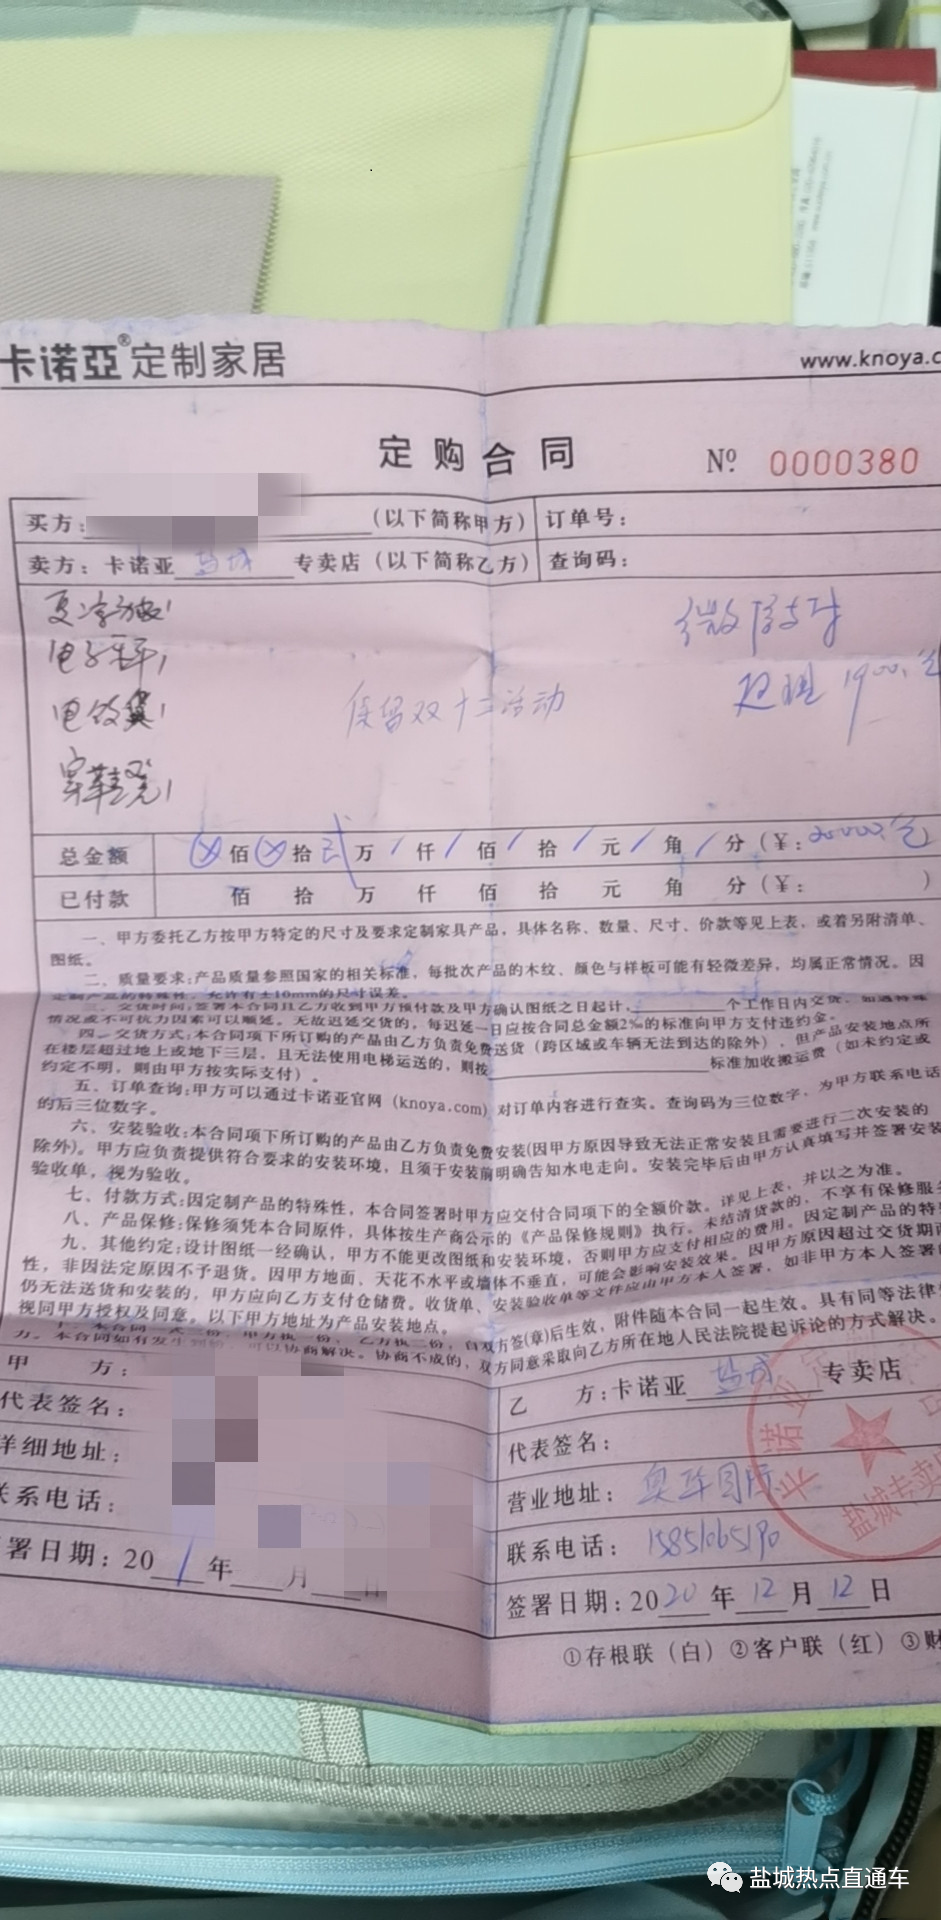 卡诺亞®定制家居
www.knoya.c
定购合同
№ 0000380
买方： （以下简称甲方）
订单号：
卖方：卡诺亚 盐城 专卖店（以下简称乙方）
查询码：
电子秤1
保留双十二活动
总金额 佰 拾 贰 万 / 仟 / 佰 / 拾 / 元 / 角 / 分（¥：20000.元
已付款 佰 拾 万 仟 佰 拾 元 角 分（¥： ）
一、甲方委托乙方按甲方特定的尺寸及要求定制家具产品，具体名称、数量、尺寸、价款等见上表，或着另附清单、
图纸。
二、质量要求：产品质量参照国家的相关标准，每批次产品的木纹、颜色与样板可能有轻微差异，均属正常情况。因
定制产品的特殊性，允许有±10mm的尺寸误差。
三、交货时间：签署本合同且乙方收到甲方预付款及甲方确认图纸之日起计，________个工作日内交货，如遇特殊
情况或不可抗力因素可以顺延。无故迟延交货的，每迟延一日应按合同总金额2‰的标准向甲方支付违约金。
四、交货方式：本合同项下所订购的产品由乙方负责免费送货（跨区域或车辆无法到达的除外），但产品安装地点所
在楼层超过地上或地下三层，且无法使用电梯运送的，则按________标准加收搬运费（如未约定或
约定不明，则由甲方按实际支付）。
五、订单查询：甲方可以通过卡诺亚官网（knoya.com）对订单内容进行查实。查询码为三位数字，为甲方联系电话
的后三位数字。
六、安装验收：本合同项下所订购的产品由乙方负责免费安装（因甲方原因导致无法正常安装且需要进行二次安装的
除外）。甲方应负责提供符合要求的安装环境，且须于安装前明确告知水电走向。安装完毕后由甲方认真填写并签署安装
验收单，视为验收。
七、付款方式：因定制产品的特殊性，本合同签署时甲方应交付合同项下的全额价款。详见上表，并以之为准。
八、产品保修：保修须凭本合同原件，具体按生产商公示的《产品保修规则》执行。未结清货款的，不享有保修服
九、其他约定：设计图纸一经确认，甲方不能更改图纸和安装环境，否则甲方应支付相应的费用。因定制产品的特殊
性，非因法定原因不予退货。因甲方地面、天花不水平或墙体不垂直，可能会影响安装效果。因甲方原因超过交货期而
仍无法送货和安装的，甲方应向乙方支付仓储费。收货单、安装验收单等文件应由甲方本人签署，如非甲方本人签署的
视同甲方授权及同意。以下甲方地址为产品安装地点。
十、本合同一式三份，甲方执一份，乙方执二份，自双方签(章)后生效，附件随本合同一起生效。具有同等法律
力。本合同如有发生纠纷，可以协商解决。协商不成的，双方同意采取向乙方所在地人民法院提起诉讼的方式解决。
甲 方：
代表签名：
详细地址：
联系电话：
署日期：20 年 月 日
乙 方：卡诺亚 盐城 专卖店
代表签名：
营业地址：
联系电话：15851065190
签署日期：2020年12月12日
盐城专卖
①存根联（白）②客户联（红）③财
盐城热点直通车